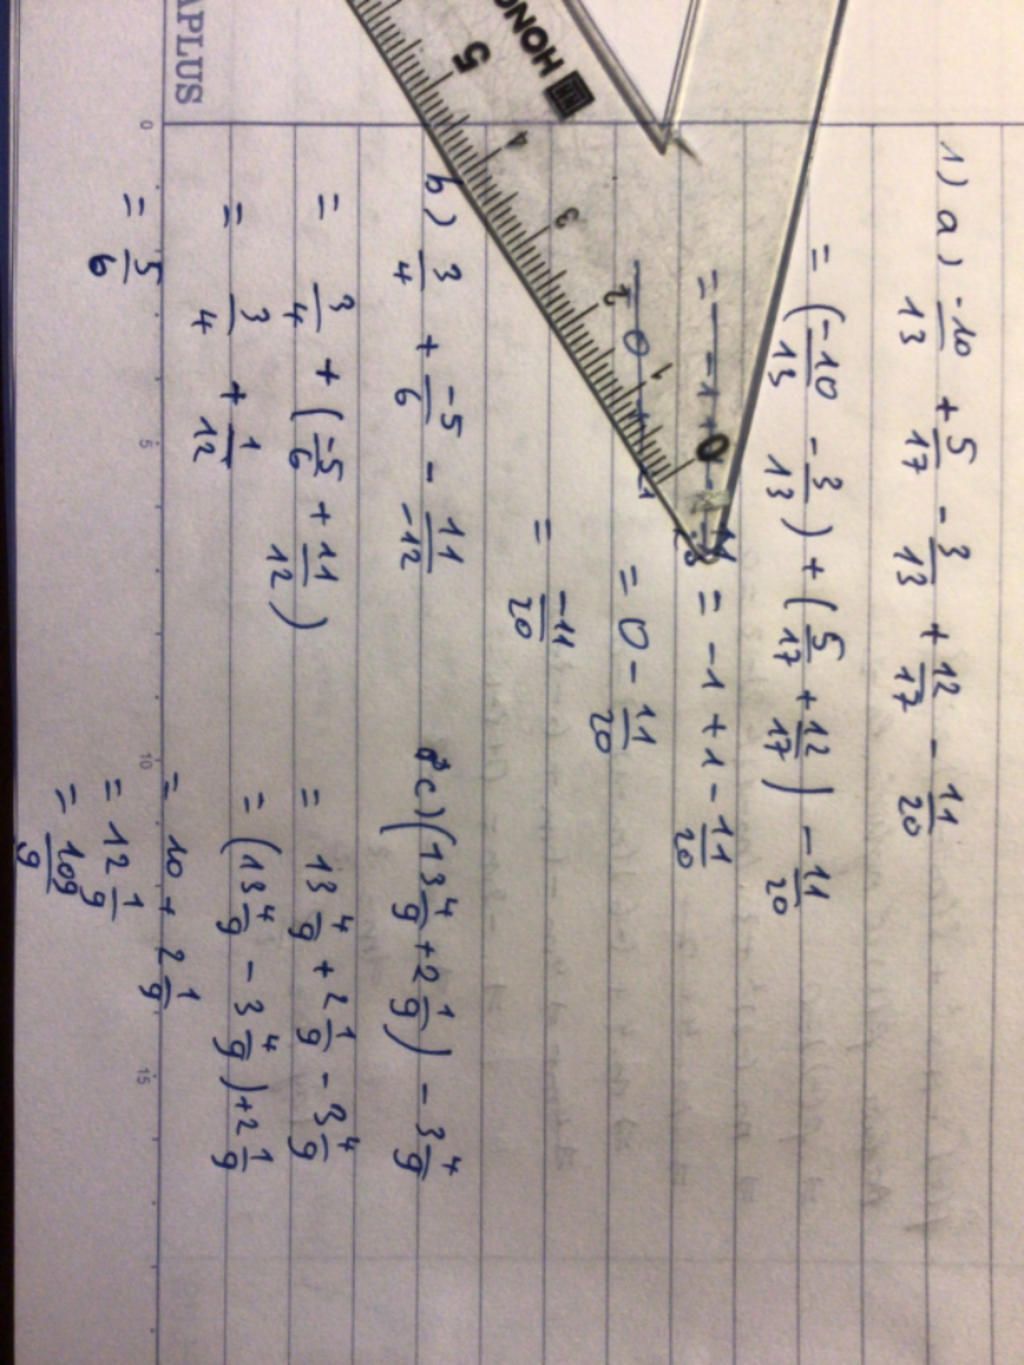 APLUS
HONG
5 4 3 2 1 0
0 5 10 15
1) a) \frac{-10}{13} + \frac{5}{17} - \frac{3}{13} + \frac{12}{17} - \frac{11}{20}
= (\frac{-10}{13} - \frac{3}{13}) + (\frac{5}{17} + \frac{12}{17}) - \frac{11}{20}
= -1 + 1 - \frac{11}{20}
= 0 - \frac{11}{20}
= \frac{-11}{20}
b) \frac{3}{4} + \frac{-5}{6} - \frac{11}{-12}
= \frac{3}{4} + (\frac{-5}{6} + \frac{11}{12})
= \frac{3}{4} + \frac{1}{12}
= \frac{5}{6}
c) (13\frac{4}{9} + 2\frac{1}{9}) - 3\frac{4}{9}
= 13\frac{4}{9} + 2\frac{1}{9} - 3\frac{4}{9}
= (13\frac{4}{9} - 3\frac{4}{9}) + 2\frac{1}{9}
= 10 + 2\frac{1}{9}
= 12\frac{1}{9}
= \frac{109}{9}